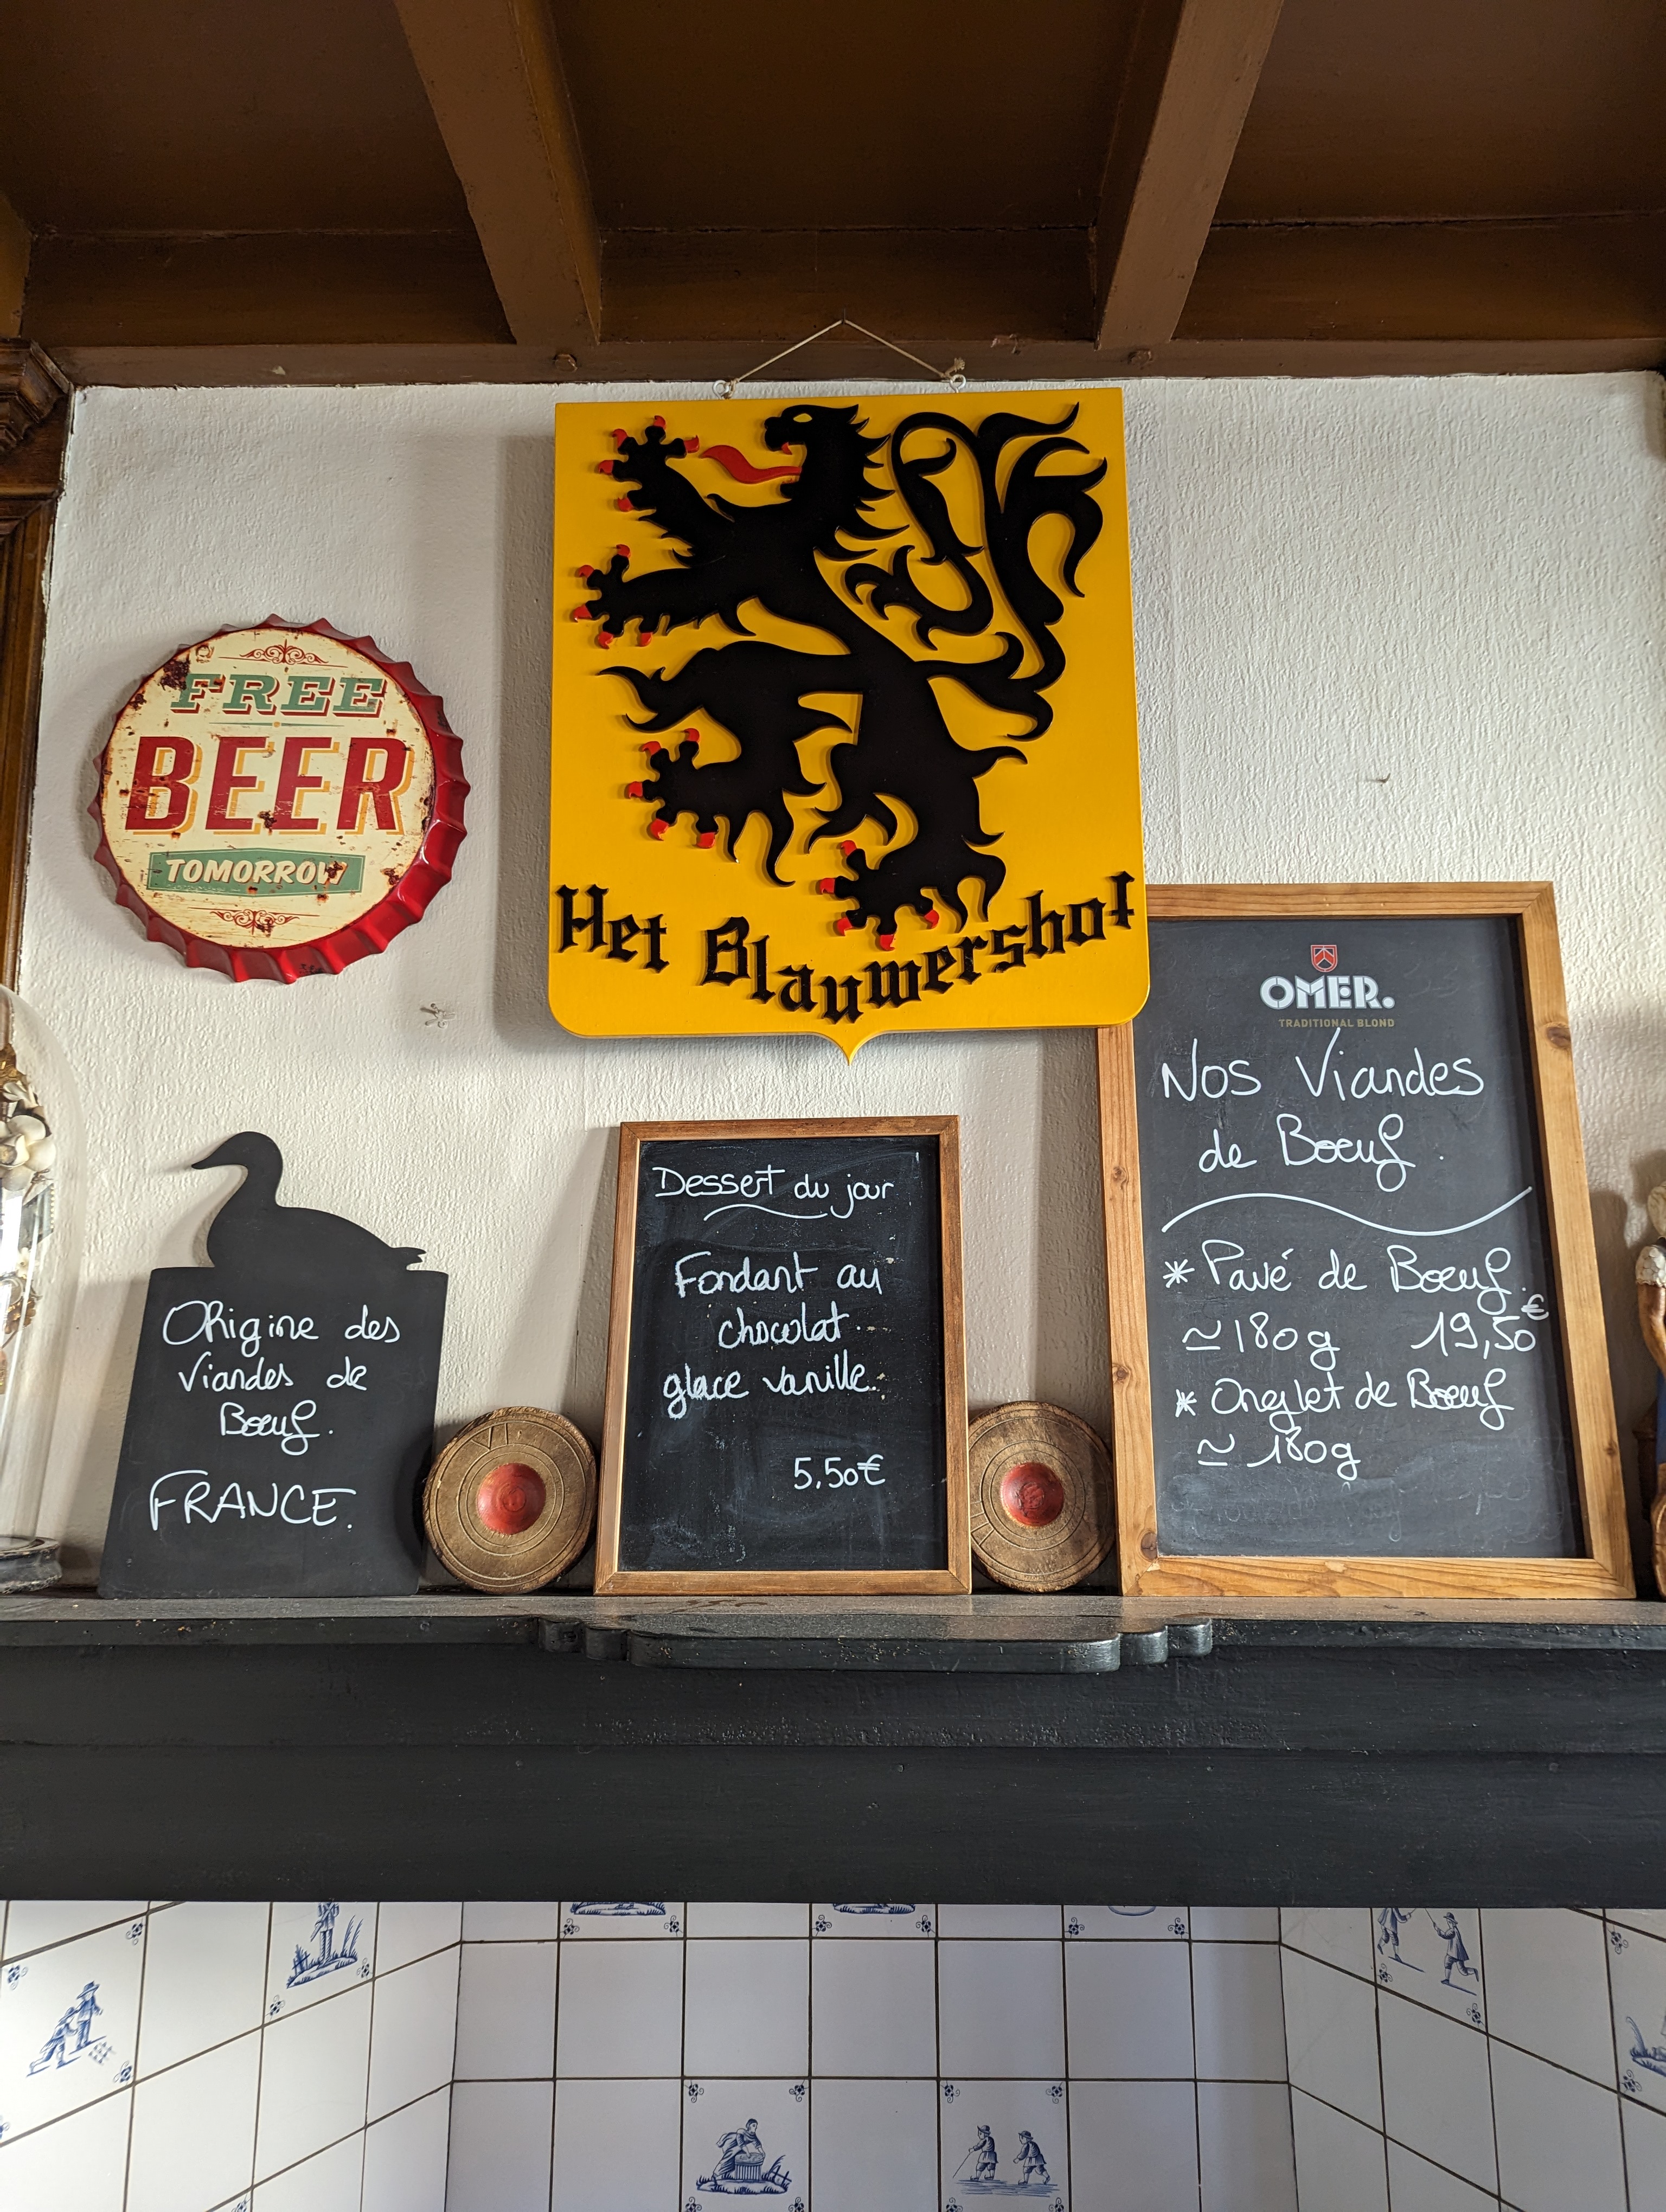 FREE
BEER
TOMORROW
Het Blauwershof
OMER.
TRADITIONAL BLOND
Nos Viandes
de Boeuf.
* Pavé de Boeuf.
≃ 180g 19,50€
* Onglet de Boeuf
≃ 180g
Dessert du jour
Fondant au
chocolat
glace vanille.
5,50€
Origine des
Viandes de
Boeuf.
FRANCE.
VI